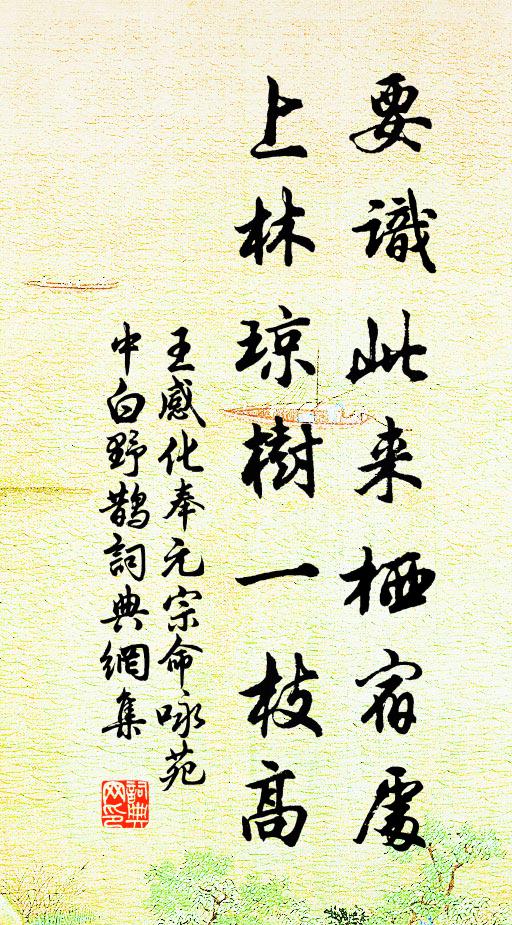 要識此来栖宿處
上林琼樹一枝高
王感化奉元宗命咏苑
中白野鹊詞典網集
詞典网印